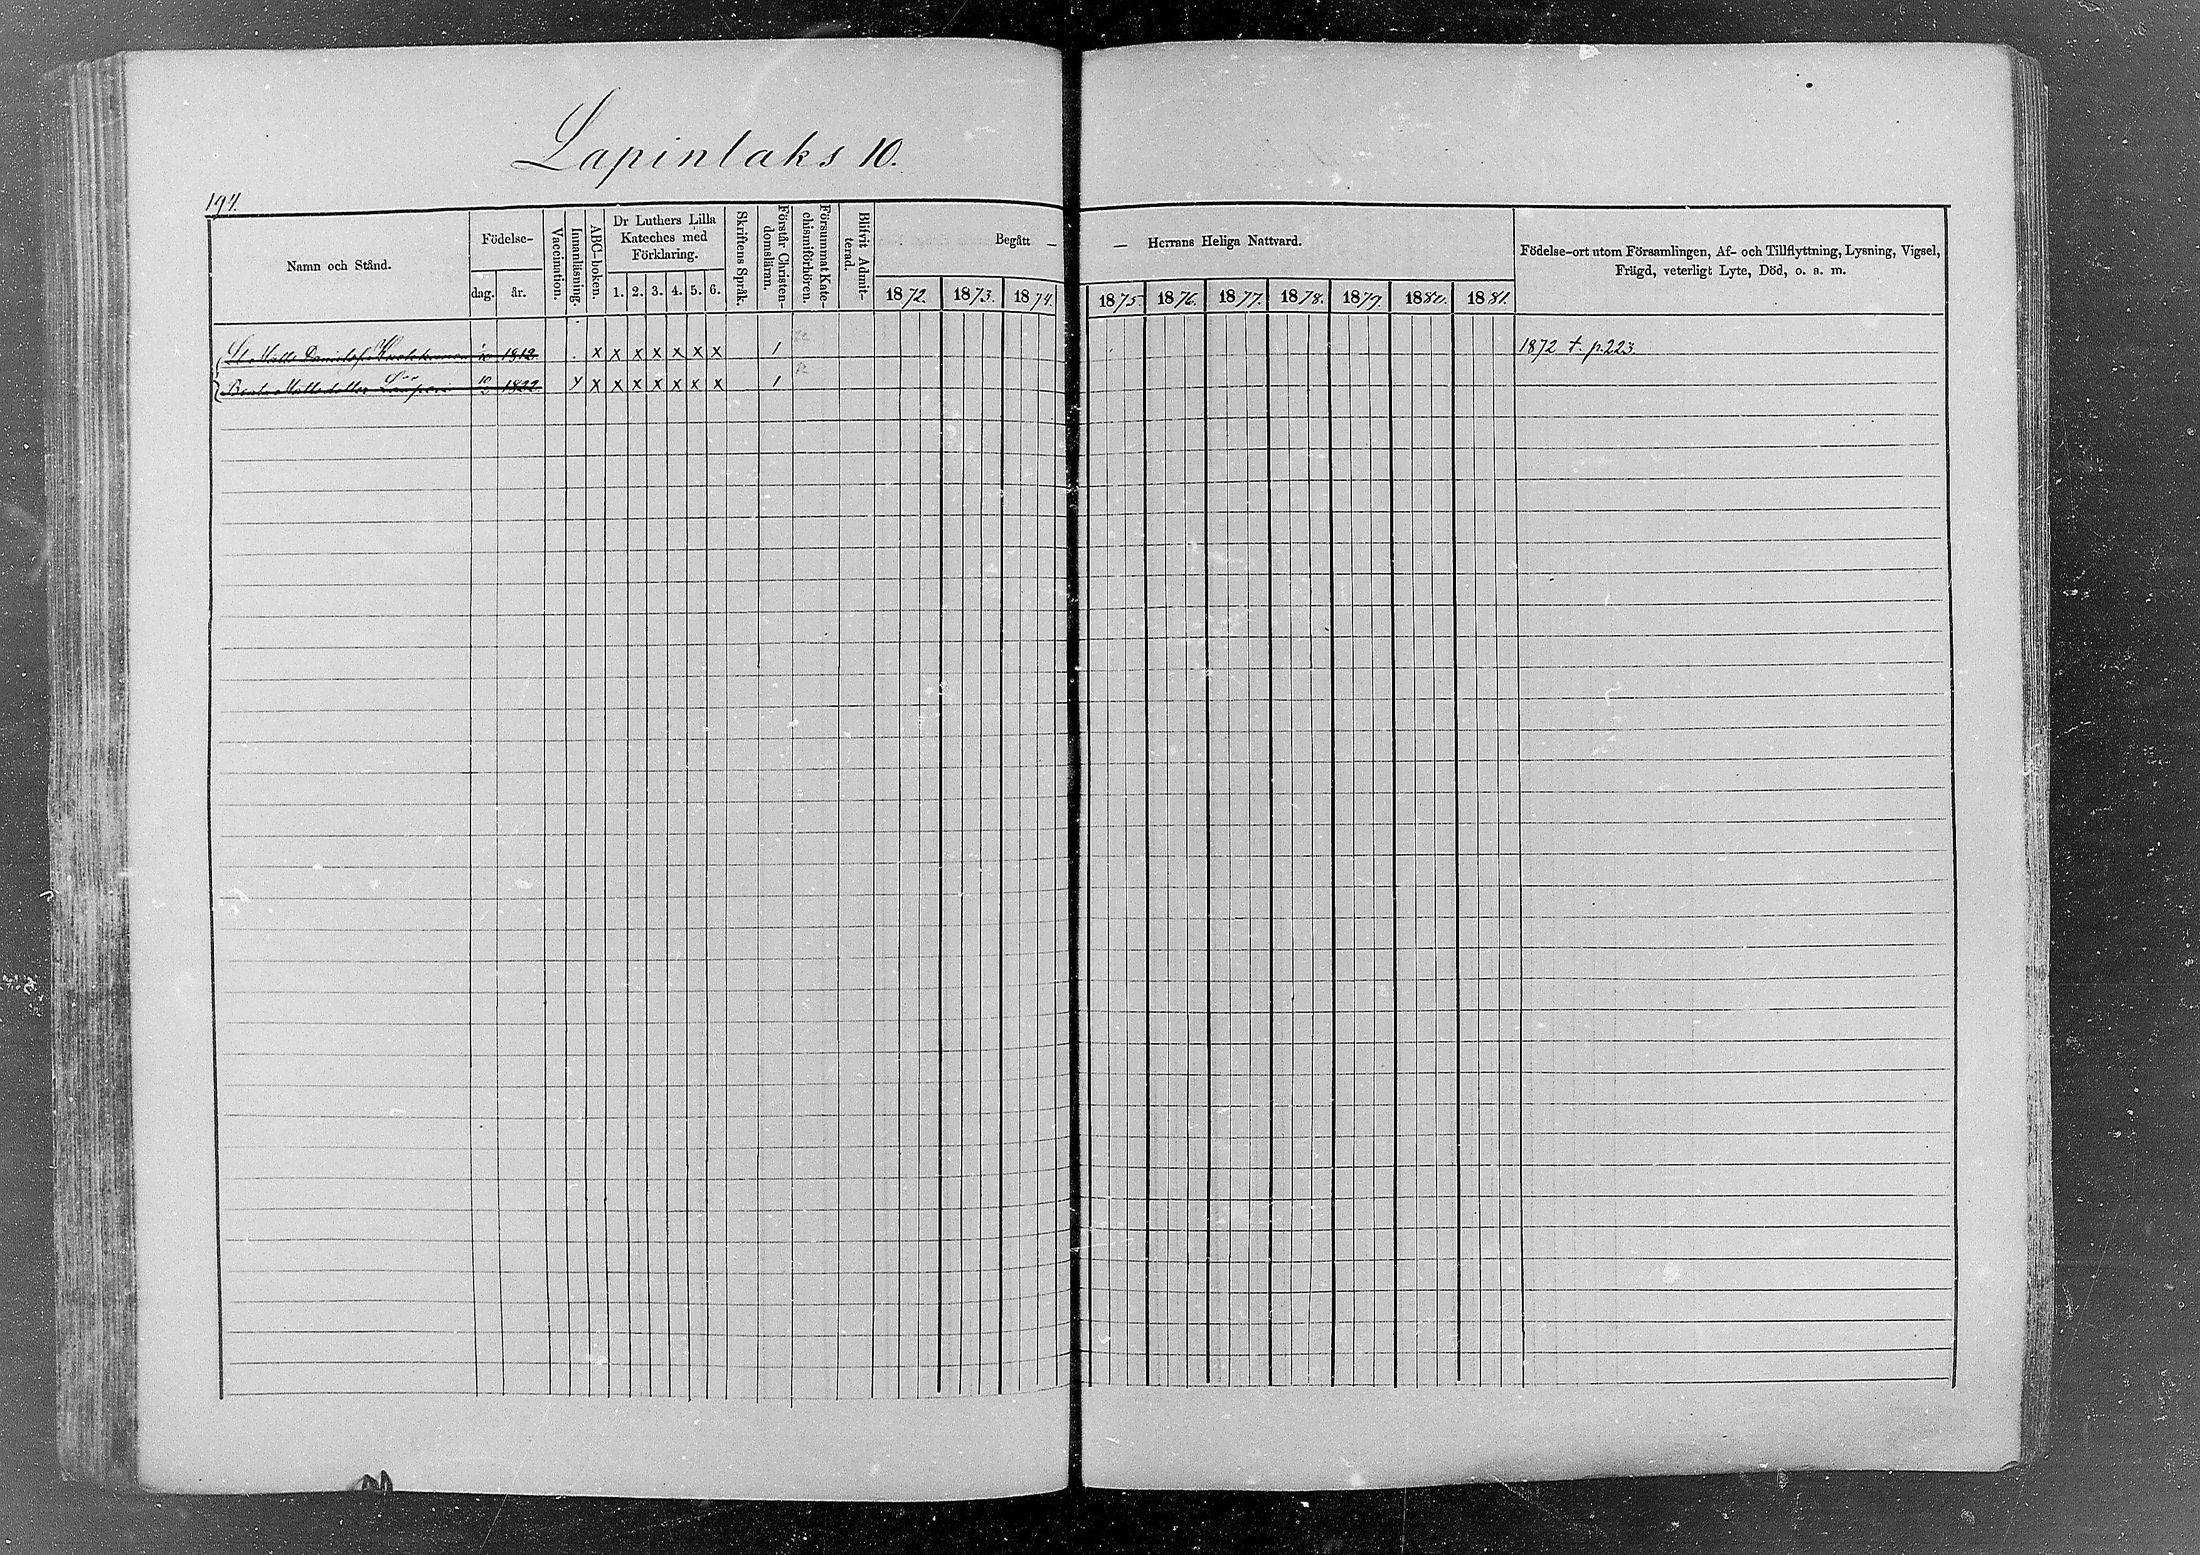 Lapinlaks 10.
194.
Namn och Stånd.
Födelse-
dag. år.
Vaccination.
Innanläsning.
ABC-boken.
Dr Luthers Lilla
Kateches med
Förklaring.
1. 2. 3. 4. 5. 6.
Skriftens Språk.
Förstår Christen-
domslären.
Försummat Kate-
chismiförhören.
Blifvit Admit-
terad.
Begått — — Herrans Heliga Nattvard.
1872. 1873. 1874. 1875 1876. 1877. 1878. 1879. 1880. 1881.
Födelse-ort utom Församlingen, Af- och Tillflyttning, Lysning, Vigsel,
Frägd, veterligt Lyte, Död, o. a. m.
Matts 1812 x x x x x x x 1 1872 t. p. 223.
Mattsdotter 1822 x x x x x x x 1